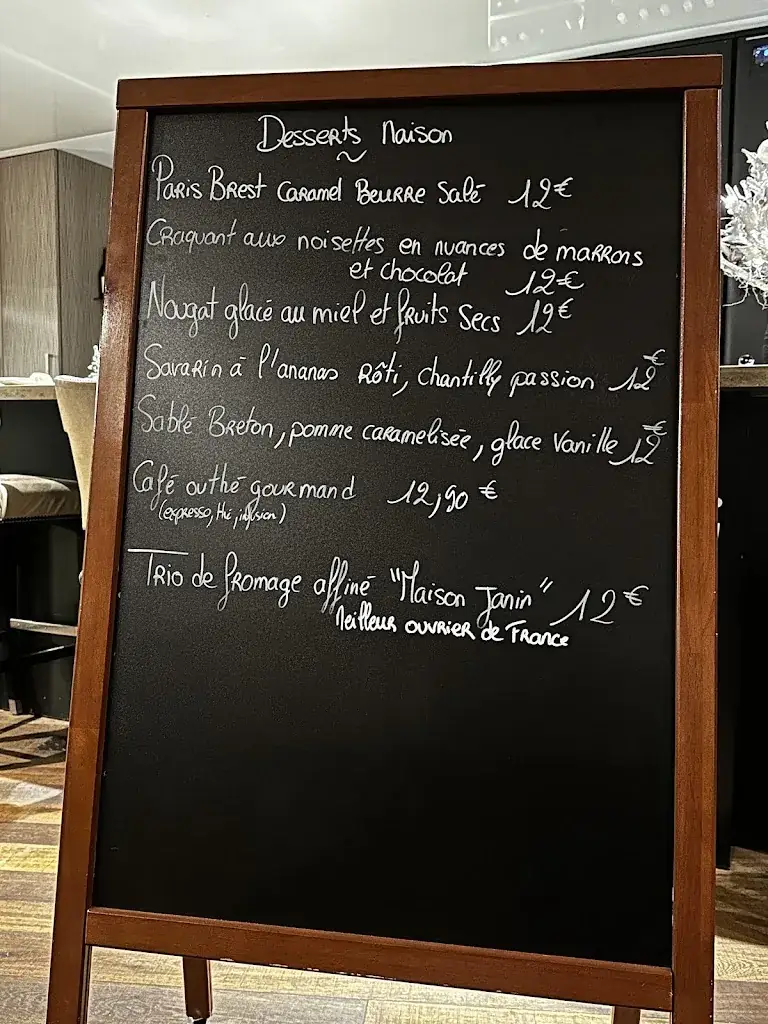 Desserts Maison
Paris Brest Caramel Beurre Salé 12€
Craquant aux noisettes en nuances de marrons
et chocolat 12€
Nougat glacé au miel et fruits secs 12€
Savarin à l'ananas rôti, chantilly passion 12€
Sablé Breton, pomme caramelisée, glace vanille 12€
Café outhé gourmand 12,90 €
(expresso, thé, infusion)
Trio de fromage affiné "Maison Janin" 12€
Meilleur ouvrier de France